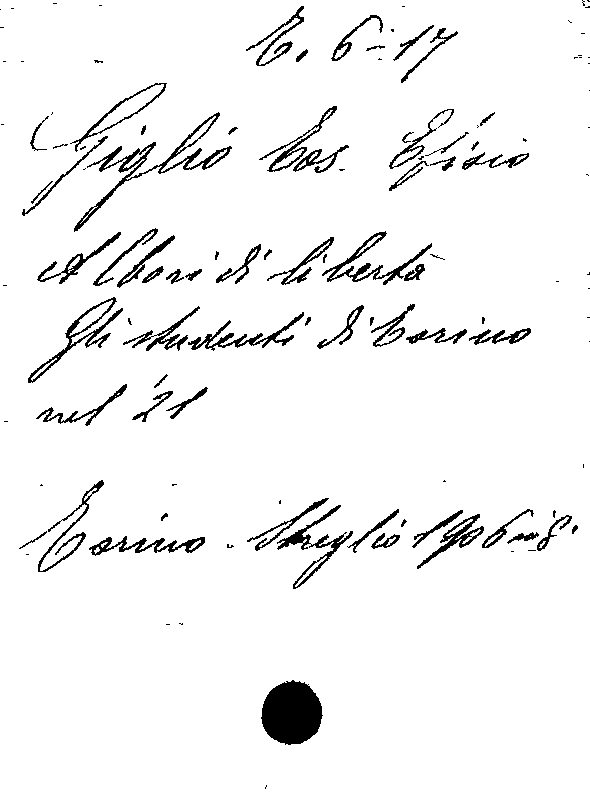 E. 6-17
Giglio Tos. Efisio
Albori di libertà
Gli studenti di Torino
nel '21
Torino. Streglio 1906 in 8.